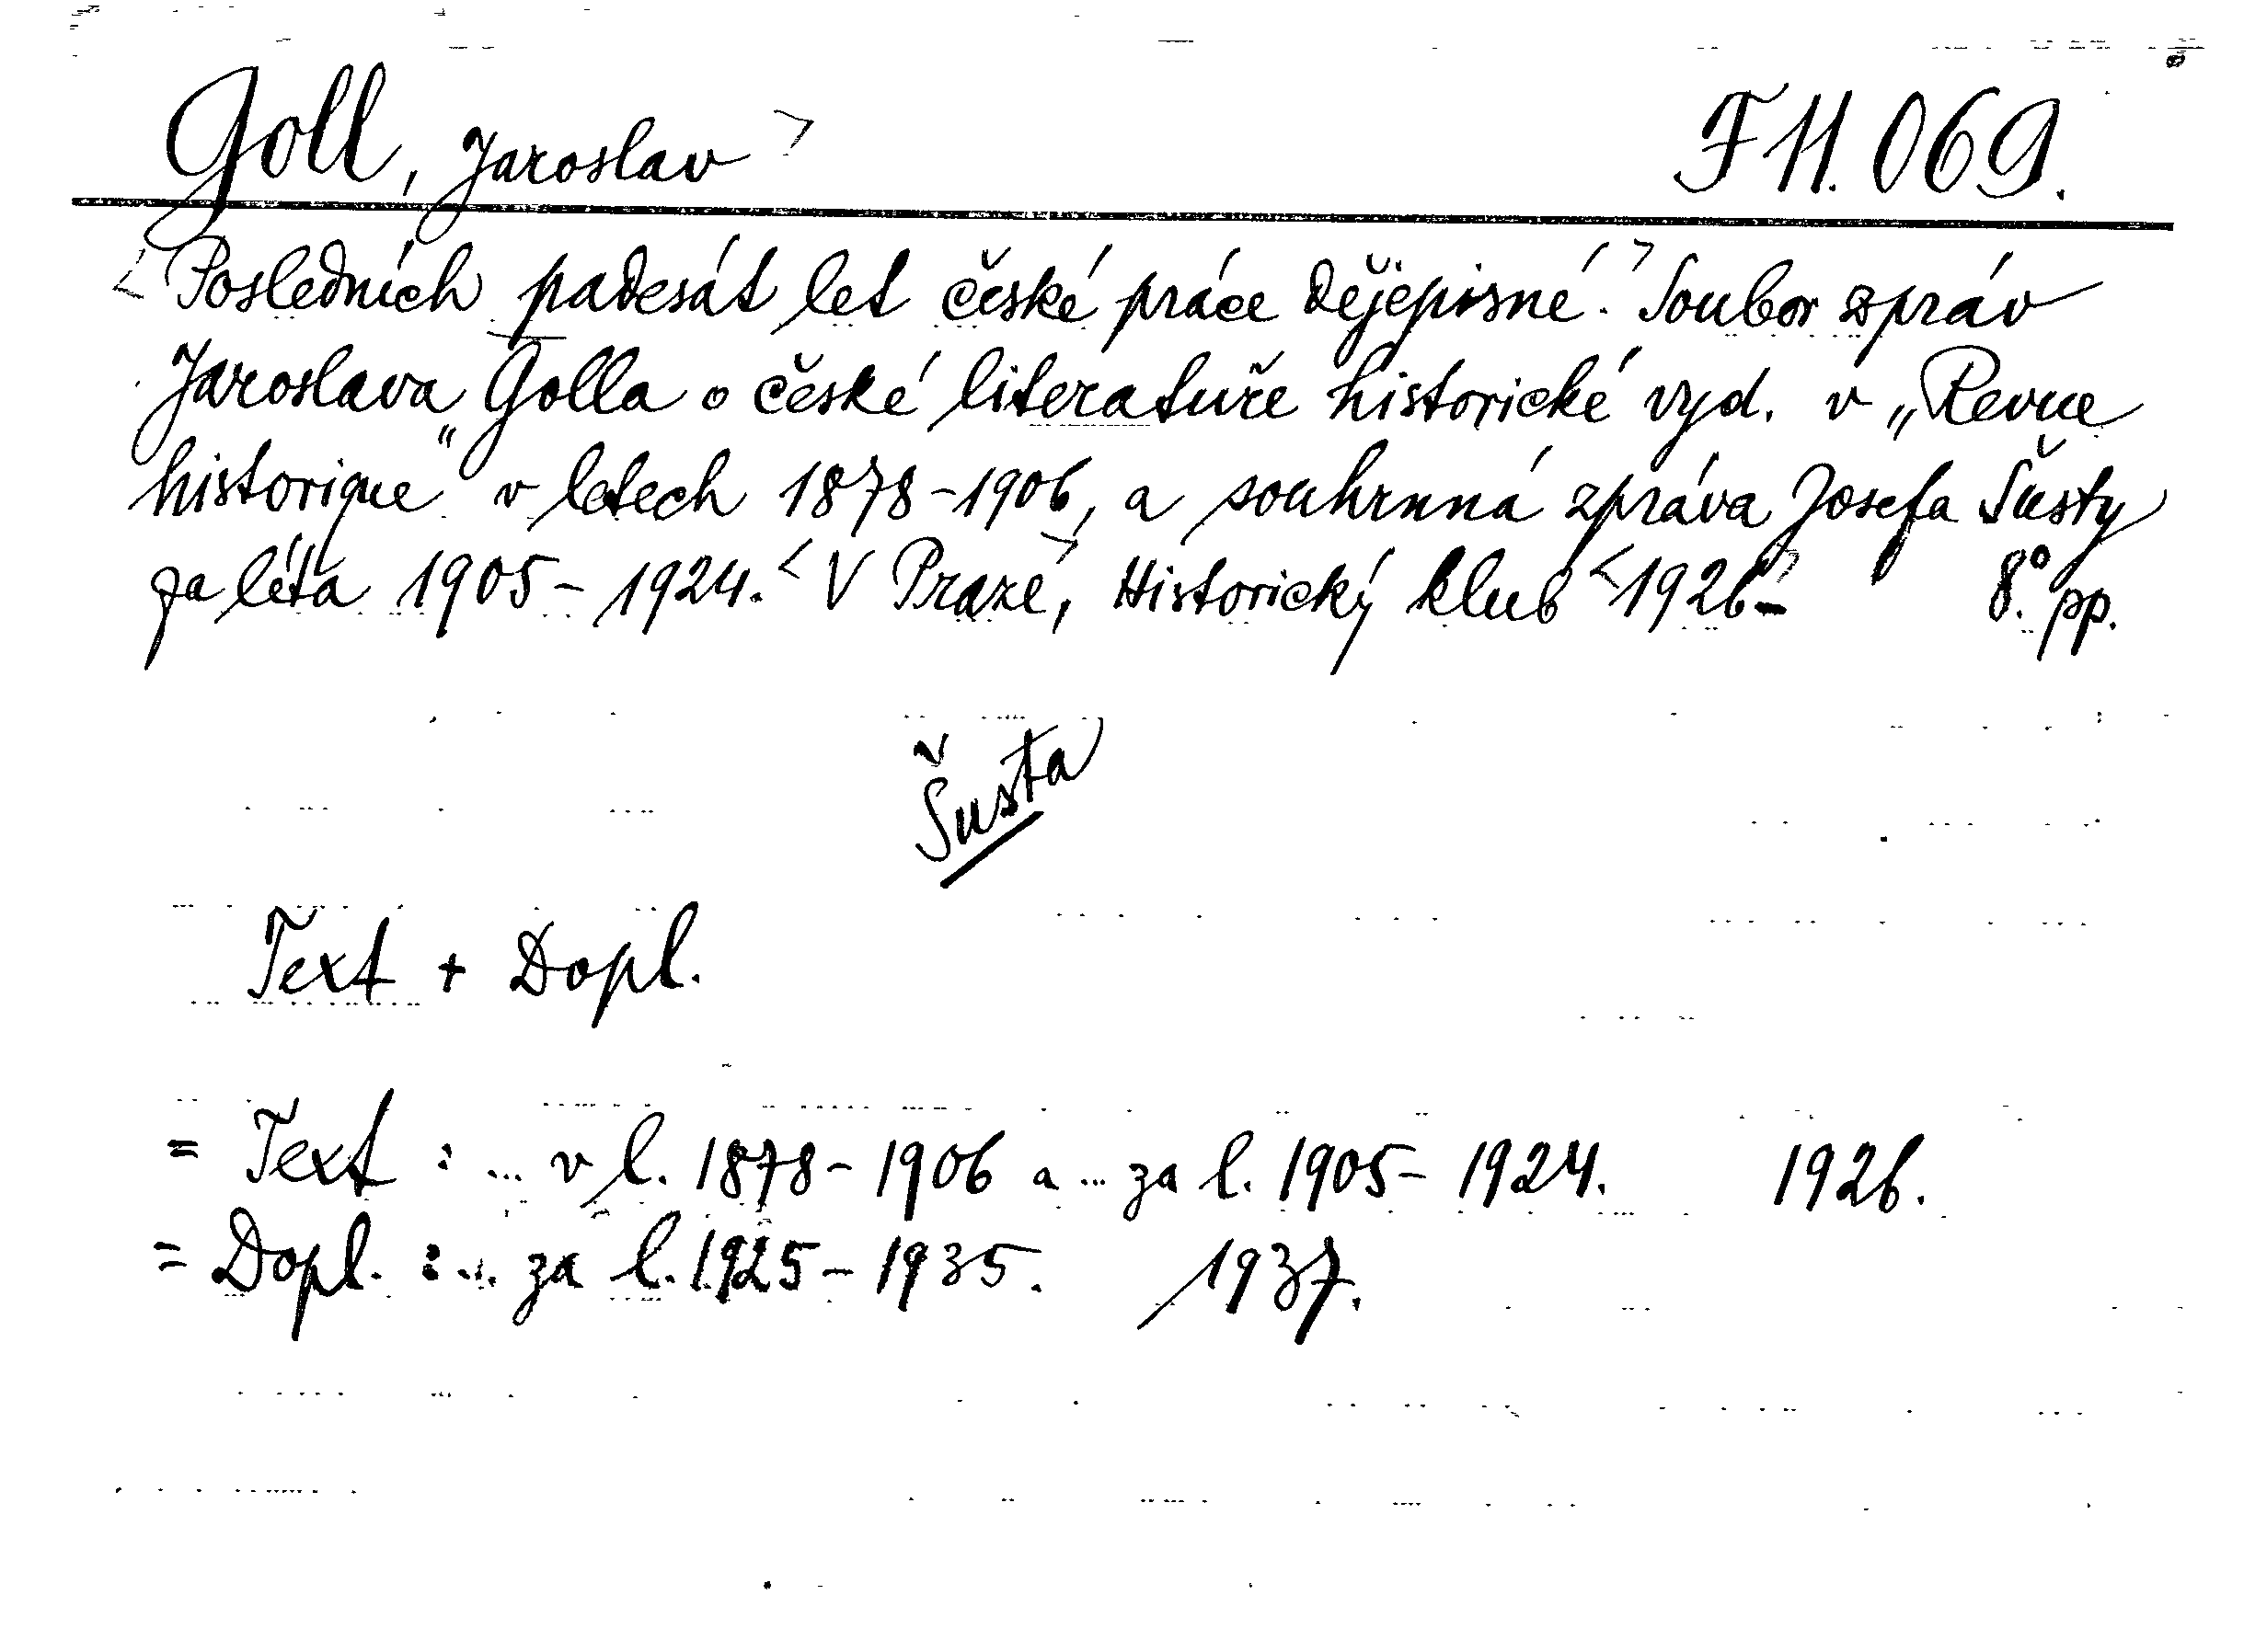 Goll, Jaroslav> F 11. 069.
<Posledních padesát let české práce dějepisné.> Soubor zpráv
Jaroslava Golla o české literatuře historické vyd. v „Revue
historique“ v letech 1878-1906, a souhrnná zpráva Josefa Šusty
za léta 1905-1924.> <V Praze, Historický klub <1926-> 8° pp.
Šusta
Text + Dopl.
= Text : ... v l. 1878-1906 a ... za l. 1905-1924. 1926.
= Dopl. : ... za l. 1925-1935. 1937.